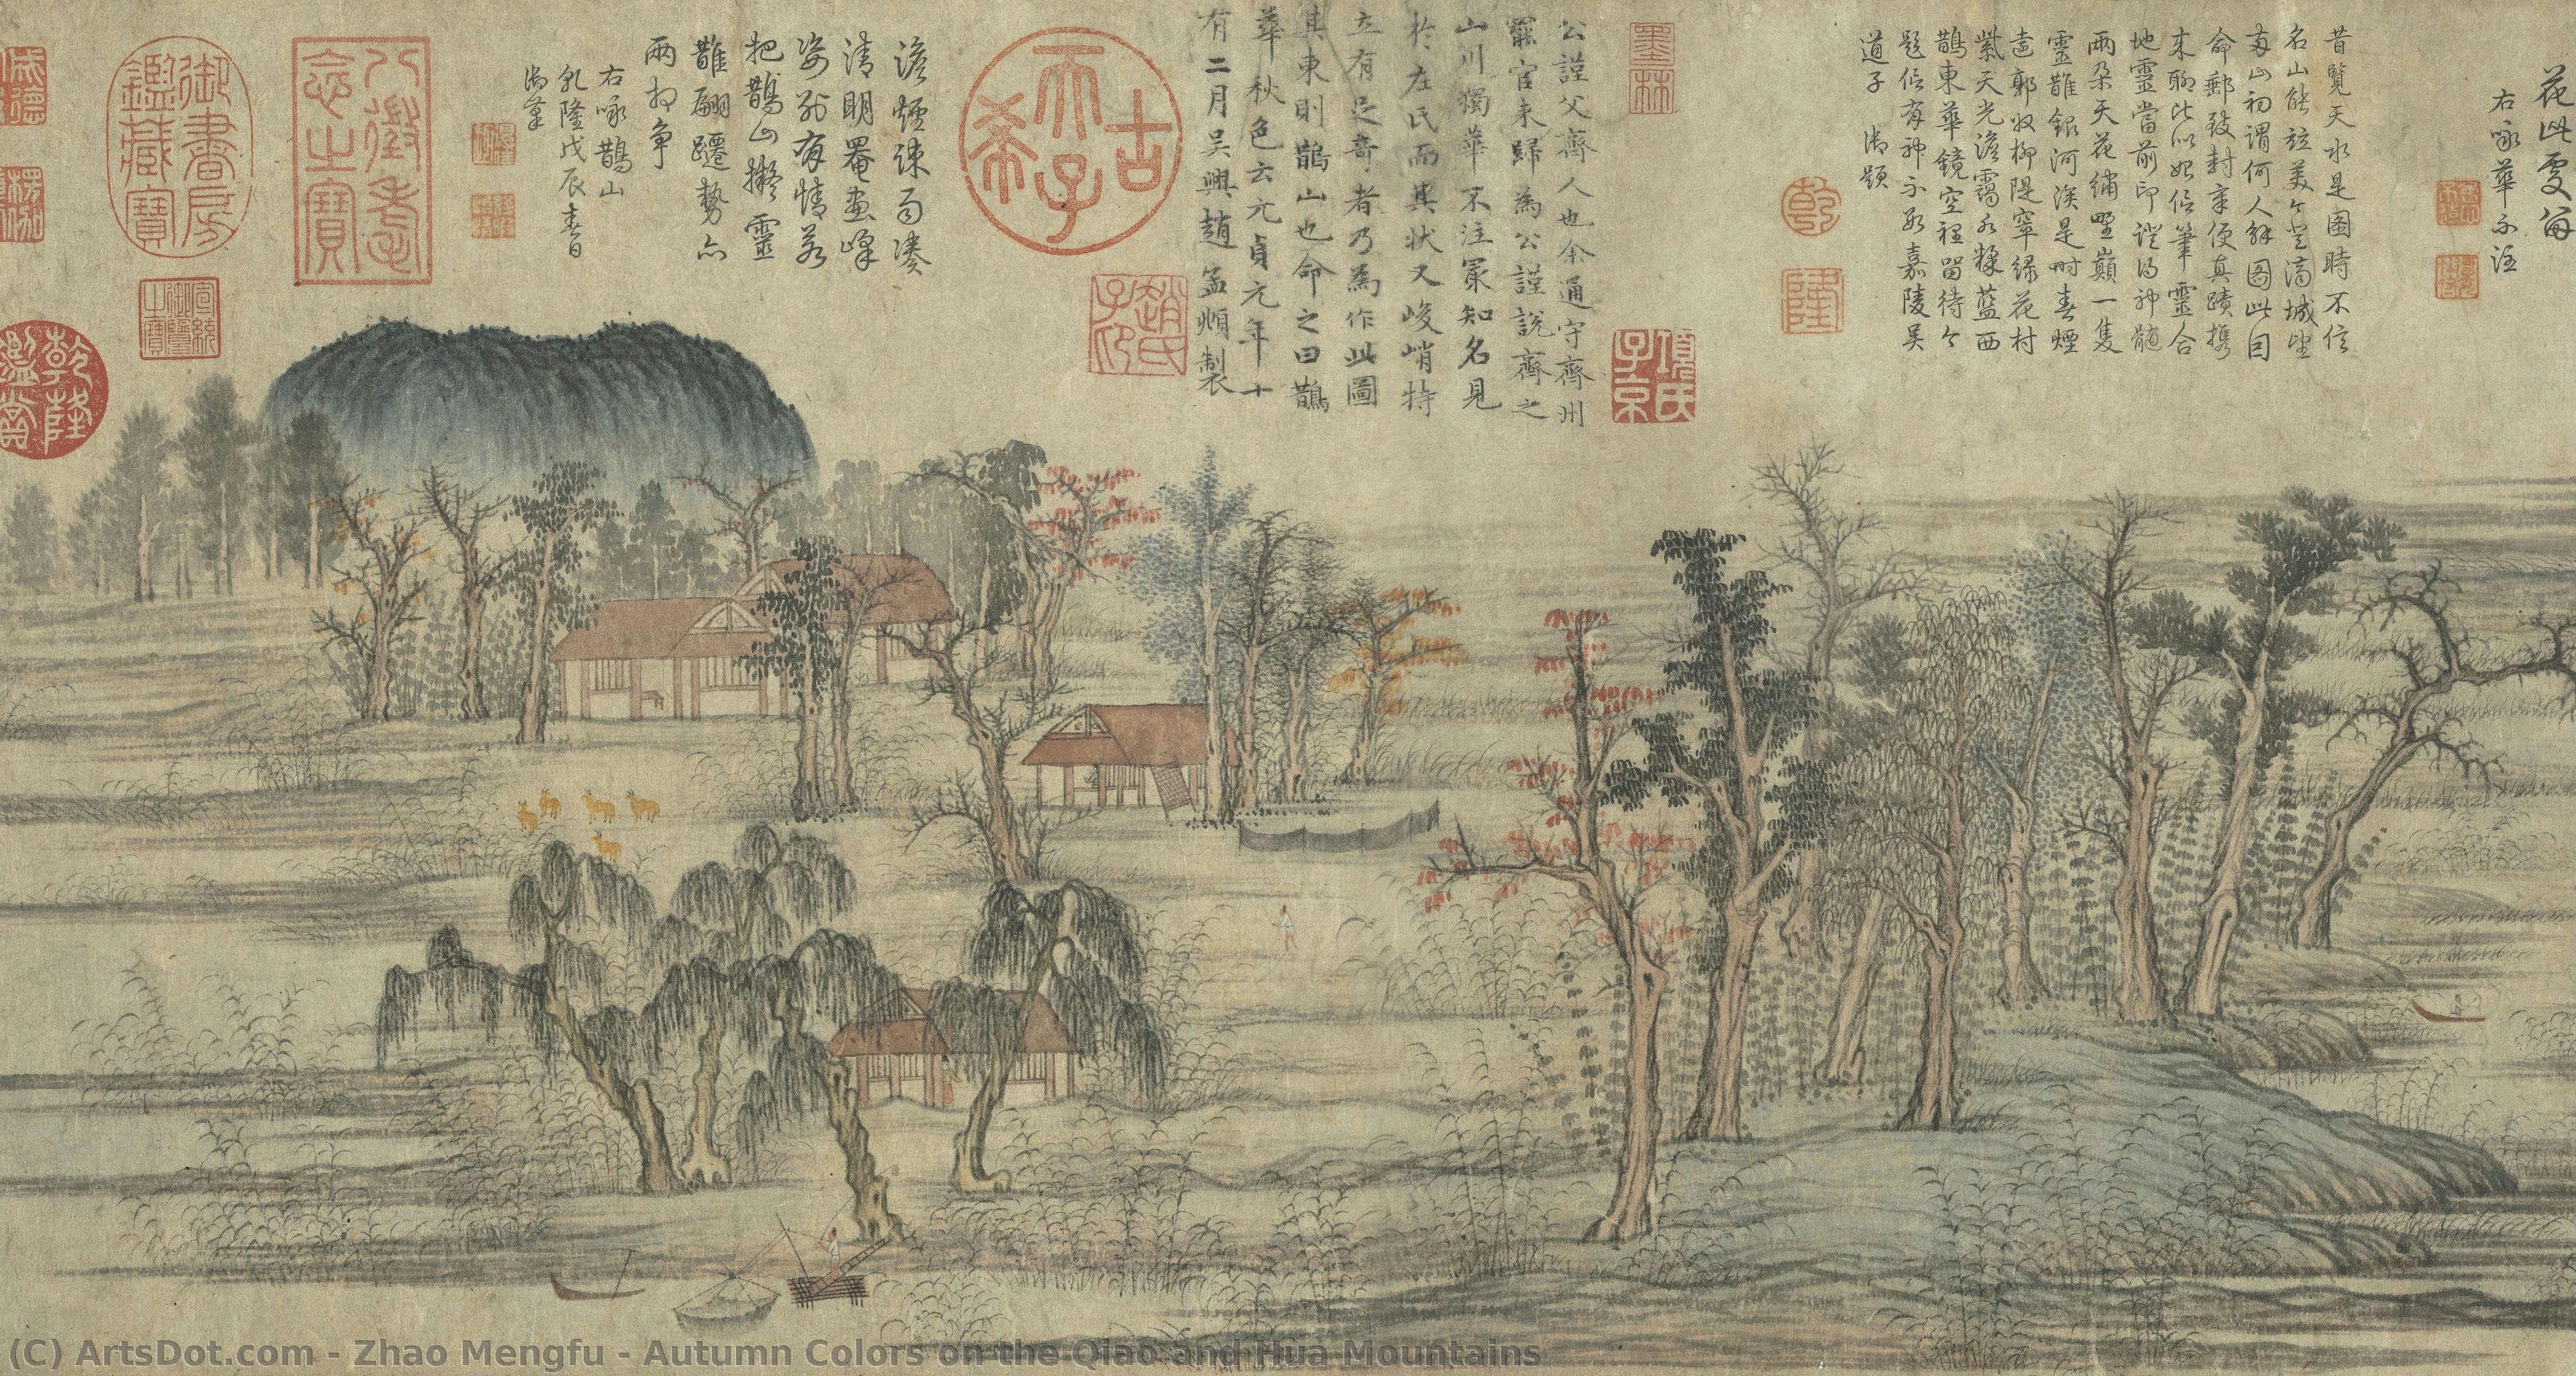 花此處留
右咏華不注
昔覽天水是圖時不信
名山能竝美今登濟城望
兩山初謂何人解圖此因
命郵致封章便真蹟攜
來聊比似始信筆靈合
地靈當前印證得神髓
兩朵天花繡野巔一隻
靈鵲銀河涘是時春煙
遠郭收柳隄窣綠花村
紫天光澹靄水揉藍西
鵲東華鏡空裡留待今
題信有神不數嘉陵吳
道子 御題
乾
隆
墨林
項氏子京
公謹父齊人也余通守齊州
罷官來歸為公謹說齊之
山川獨華不注最知名見
於左氏而其狀又峻峭特
立有足奇者乃為作此圖
其東則鵲山也命之曰鵲
華秋色云元貞元年十
有二月吳興趙孟頫製
趙氏子昂
古希天子
澹煙疎雨湊
清明罨畫峰
姿別有情若
把鵲山擬靈
鵲翩躚勢亦
兩相爭
右咏鵲山
乾隆戊辰春日
御筆
八徵耄念之寶
御書房鑑藏寶
宣統御覽之寶
成德
楞伽
乾隆鑑賞
(C) ArtsDot.com - Zhao Mengfu - Autumn Colors on the Qiao and Hua Mountains